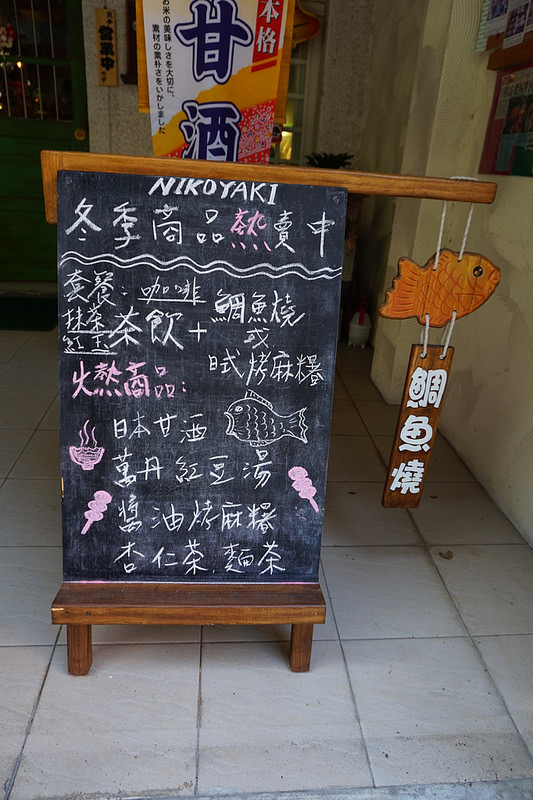 本格
甘酒
お米の美味しさを大切に、
素材の素朴さをいかしました
営業中
NIKOYAKI
冬季商品熱賣中
套餐:咖啡
抹茶
紅玉
茶飲+
鯛魚燒
或
日式烤麻糬
火熱商品:
日本甘酒
萬丹紅豆湯
醬油烤麻糬
杏仁茶.麵茶
鯛魚燒